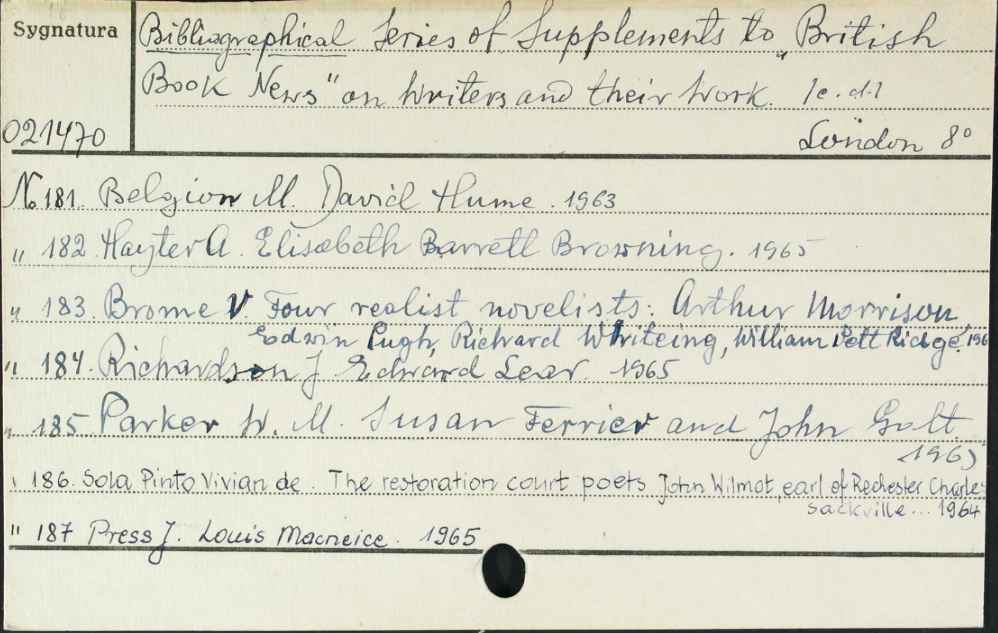 Sygnatura
Bibliographical Series of Supplements to "British
Book News" on Writers and their Work. /c.d./
021470
London 8°
No 181. Belgion M. David Hume. 1963
" 182. Hayter A. Elisabeth Barrett Browning. 1965
" 183. Brome V. Four realist novelists: Arthur Morrison,
Edwin Pugh, Richard Whiteing, William Pett Ridge. 196
" 184. Richardson J. Edward Lear. 1965
" 185 Parker W. M. Susan Ferrier and John Galt.
1965
" 186. Sola Pinto Vivian de. The restoration court poets John Wilmot, earl of Rechester Charles
Sackville... 1964
" 187 Press J. Louis Macneice. 1965